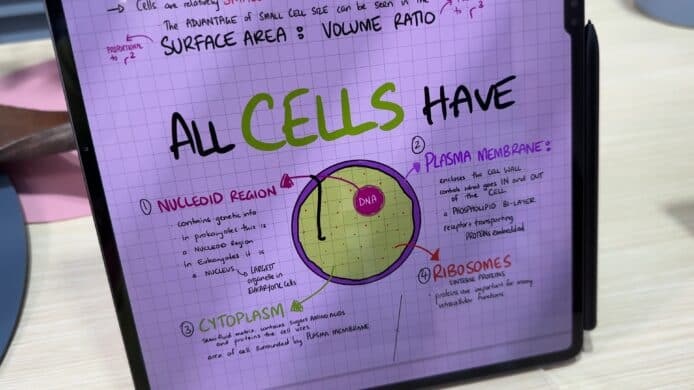 → Cells are relatively SMALL
The ADVANTAGE of SMALL CELL SIZE can be seen in the
SURFACE AREA : VOLUME RATIO
PROPORTIONAL
to r²
to r³
ALL CELLS HAVE
① NUCLEOID REGION
contains genetic info
in prokaryotes this is
a NUCLEOID Region
in Eukaryotes it is
a NUCLEUS
LARGEST
organelle in
EUKARYOTIC Cells
DNA
② PLASMA MEMBRANE:
encloses the CELL WALL
controls what goes IN and OUT
of the CELL
a PHOSPHOLIPID BI-LAYER
receptors transporting
PROTEINS embedded
③ CYTOPLASM
semi fluid matrix, contains sugars AMINO ACIDS
and proteins the cell uses
area of cell surrounded by PLASMA MEMBRANE
④ RIBOSOMES
SYNTHESISE PROTEINS
proteins are important for many
intracellular functions